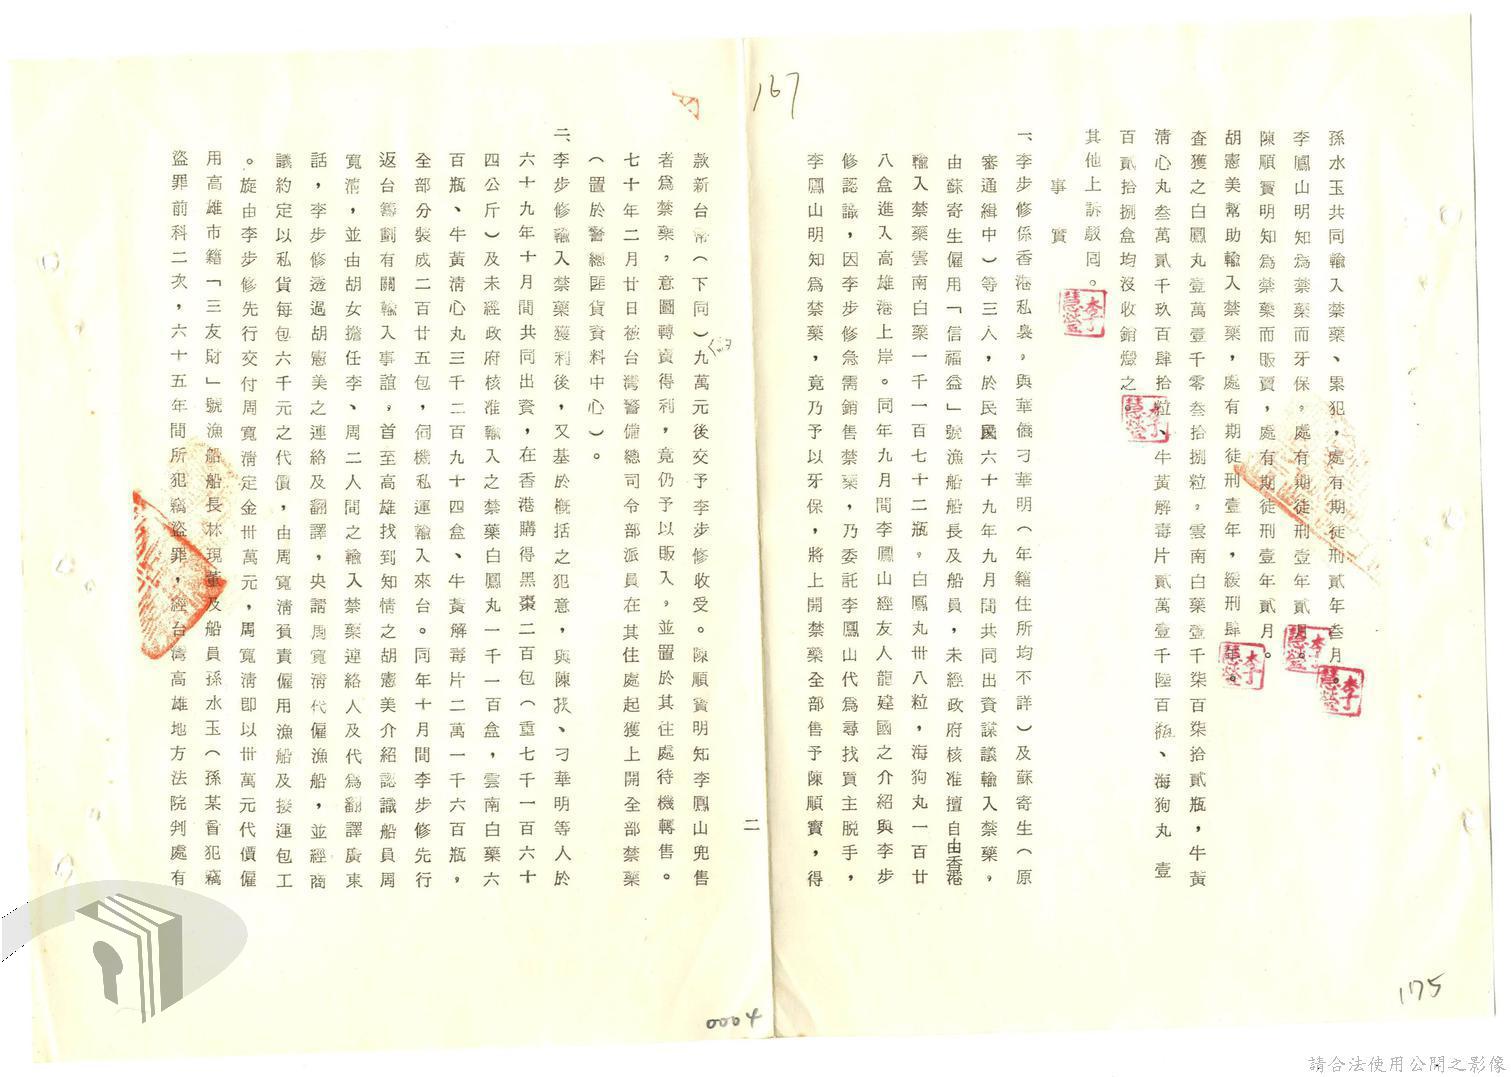 167
孫水玉共同輸入禁藥、累犯，處有期徒刑貳年叁月。
李鳳山明知為禁藥而牙保，處有期徒刑壹年貳月。
陳順寶明知為禁藥而販賣，處有期徒刑壹年貳月。
胡憲美幫助輸入禁藥，處有期徒刑壹年，緩刑肆年。
查獲之白鳳丸壹萬壹千零叁拾捌粒，雲南白藥壹千柒百柒拾貳瓶，牛黃
清心丸叁萬貳千玖百肆拾粒、牛黃解毒片貳萬壹千陸百瓶、海狗丸壹
百貳拾捌盒均沒收銷燬之。
其他上訴駁回。
事實
一、李步修係香港私梟，與華僑刁華明（年籍住所均不詳）及蘇寄生（原
審通緝中）等三人，於民國六十九年九月間共同出資謀議輸入禁藥，
由蘇寄生僱用「信福益」號漁船船長及船員，未經政府核准擅自由香港
輸入禁藥雲南白藥一千一百七十二瓶，白鳳丸卅八粒，海狗丸一百廿
八盒進入高雄港上岸。同年九月間李鳳山經友人龍建國之介紹與李步
修認識，因李步修急需銷售禁藥，乃委託李鳳山代為尋找買主脫手，
李鳳山明知為禁藥，竟乃予以牙保，將上開禁藥全部售予陳順寶，得
二
款新台幣（下同）九萬元後交予李步修收受。陳順寶明知李鳳山兜售
者為禁藥，意圖轉賣得利，竟仍予以販入，並置於其住處待機轉售。
七十年二月廿日被台灣警備總司令部派員在其住處起獲上開全部禁藥
（置於警總匪貨資料中心）。
二、李步修輸入禁藥獲利後，又基於概括之犯意，與陳扶、刁華明等人於
六十九年十月間共同出資，在香港購得黑棗二百包（重七千一百六十
四公斤）及未經政府核准輸入之禁藥白鳳丸一千一百盒，雲南白藥六
百瓶、牛黃清心丸三千二百九十四盒、牛黃解毒片二萬一千六百瓶，
全部分裝成二百廿五包，伺機私運輸入來台。同年十月間李步修先行
返台籌劃有關輸入事誼，首至高雄找到知情之胡憲美介紹認識船員周
寬清，並由胡女擔任李、周二人間之輸入禁藥連絡人及代為翻譯廣東
話，李步修透過胡憲美之連絡及翻譯，央請周寬清代僱漁船，並經商
議約定以私貨每包六千元之代價，由周寬清負責僱用漁船及接運包工
。旋由李步修先行交付周寬清定金卅萬元，周寬清即以卅萬元代價僱
用高雄市籍「三友財」號漁船船長林現董及船員孫水玉（孫某曾犯竊
盜罪前科二次，六十五年間所犯竊盜罪，經台灣高雄地方法院判處有
0004
175
請合法使用公開之影像